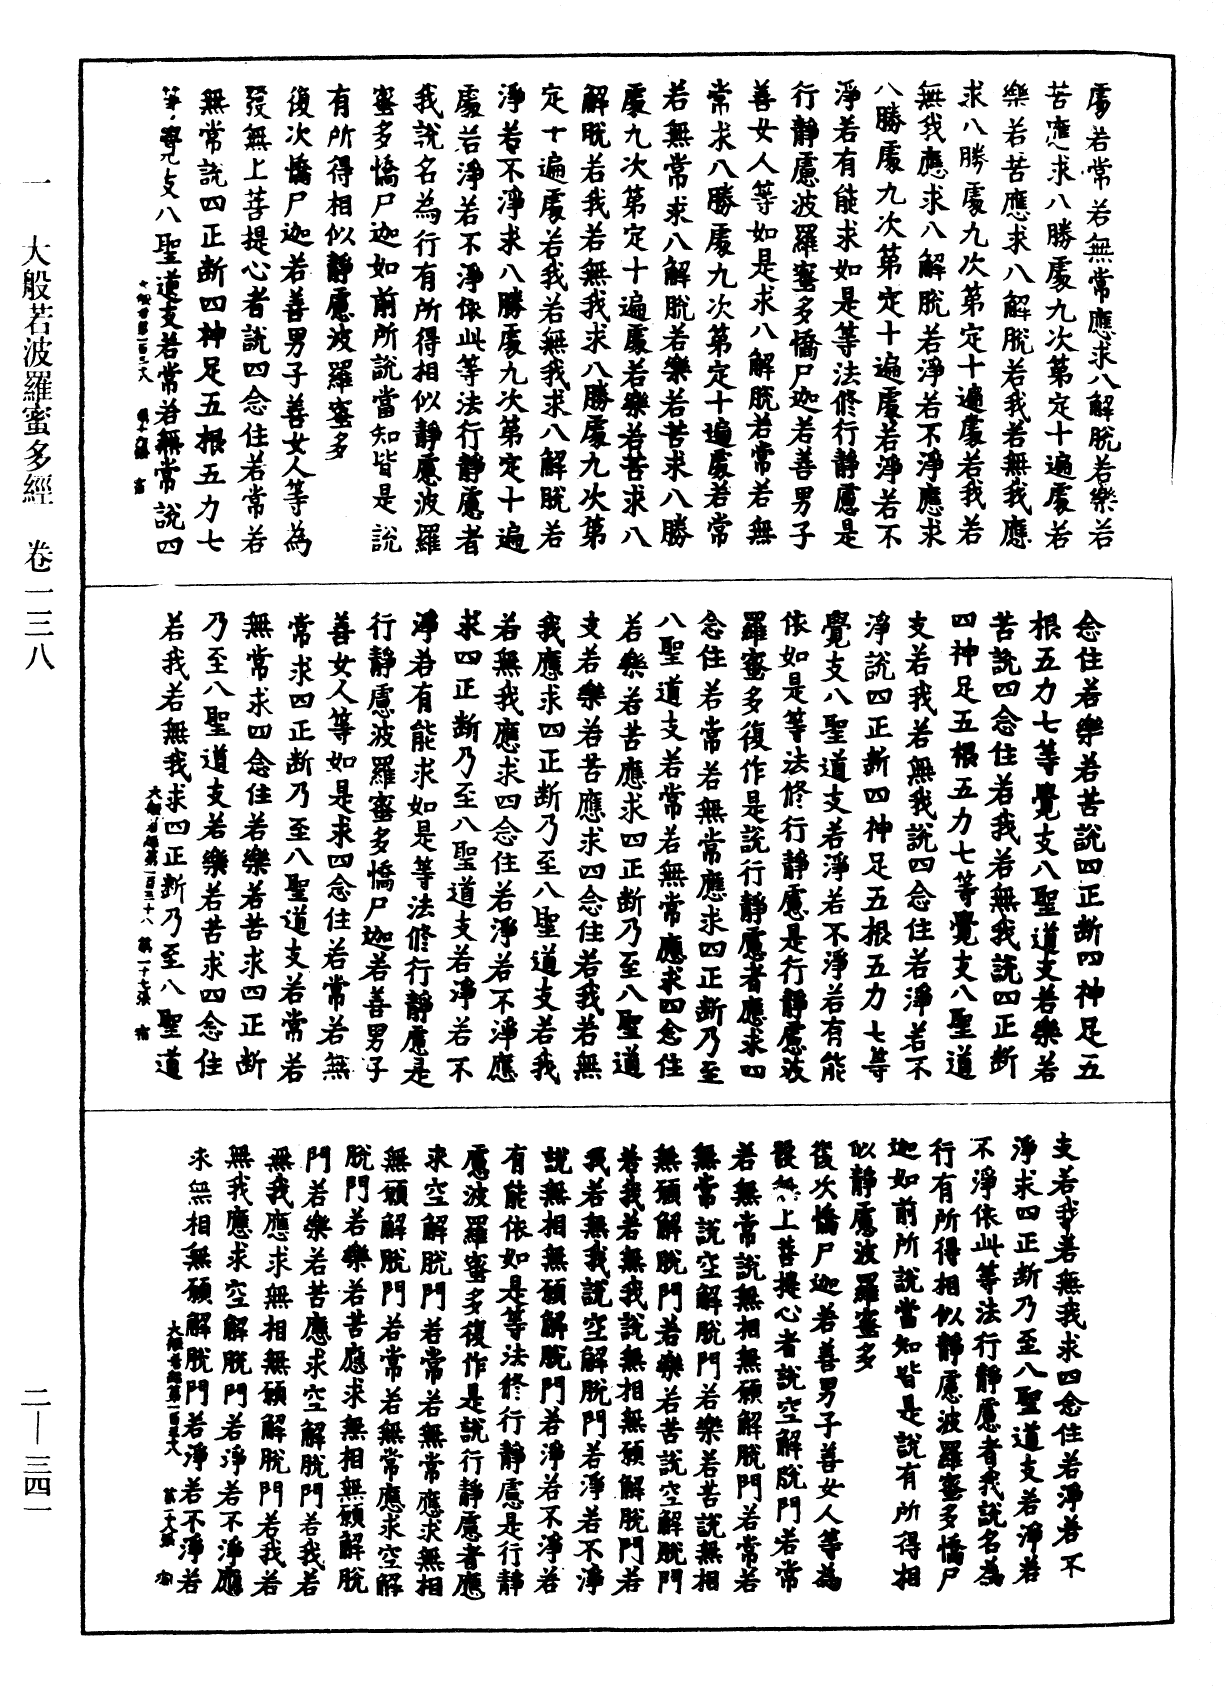 處若常若無常應求八解脫若樂若
苦應求八勝處九次第定十遍處若
樂若苦應求八解脫若我若無我應
求八勝處九次第定十遍處若我若
無我應求八解脫若淨若不淨應求
八勝處九次第定十遍處若淨若不
淨若有能求如是等法修行靜慮是
行靜慮波羅蜜多憍尸迦若善男子
善女人等如是求八解脫若常若無
常求八勝處九次第定十遍處若常
若無常求八解脫若樂若苦求八勝
處九次第定十遍處若樂若苦求八
解脫若我若無我求八勝處九次第
定十遍處若我若無我求八解脫若
淨若不淨求八勝處九次第定十遍
處若淨若不淨依此等法行靜慮者
我說名為行有所得相似靜慮波羅
蜜多憍尸迦如前所說當知皆是說
有所得相似靜慮波羅蜜多
復次憍尸迦若善男子善女人等為
發無上菩提心者說四念住若常若
無常說四正斷四神足五根五力七
等覺支八聖道支若常若無常說四
念住若樂若苦說四正斷四神足五
根五力七等覺支八聖道支若樂若
苦說四念住若我若無我說四正斷
四神足五根五力七等覺支八聖道
支若我若無我說四念住若淨若不
淨說四正斷四神足五根五力七等
覺支八聖道支若淨若不淨若有能
依如是等法修行靜慮是行靜慮波
羅蜜多復作是說行靜慮者應求四
念住若常若無常應求四正斷乃至
八聖道支若常若無常應求四念住
若樂若苦應求四正斷乃至八聖道
支若樂若苦應求四念住若我若無
我應求四正斷乃至八聖道支若我
若無我應求四念住若淨若不淨應
求四正斷乃至八聖道支若淨若不
淨若有能求如是等法修行靜慮是
行靜慮波羅蜜多憍尸迦若善男子
善女人等如是求四念住若常若無
常求四正斷乃至八聖道支若常若
無常求四念住若樂若苦求四正斷
乃至八聖道支若樂若苦求四念住
若我若無我求四正斷乃至八聖道
大般若經第一百三十八 第二十七張 宿
支若我若無我求四念住若淨若不
淨求四正斷乃至八聖道支若淨若
不淨依此等法行靜慮者我說名為
行有所得相似靜慮波羅蜜多憍尸
迦如前所說當知皆是說有所得相
似靜慮波羅蜜多
復次憍尸迦若善男子善女人等為
發無上菩提心者說空解脫門若常
若無常說無相無願解脫門若常若
無常說空解脫門若樂若苦說無相
無願解脫門若樂若苦說空解脫門
若我若無我說無相無願解脫門若
我若無我說空解脫門若淨若不淨
說無相無願解脫門若淨若不淨若
有能依如是等法修行靜慮是行靜
慮波羅蜜多復作是說行靜慮者應
求空解脫門若常若無常應求無相
無願解脫門若常若無常應求空解
脫門若樂若苦應求無相無願解脫
門若樂若苦應求空解脫門若我若
無我應求無相無願解脫門若我若
無我應求空解脫門若淨若不淨應
求無相無願解脫門若淨若不淨若
一 大般若波羅蜜多經 卷一三八
二—三四一